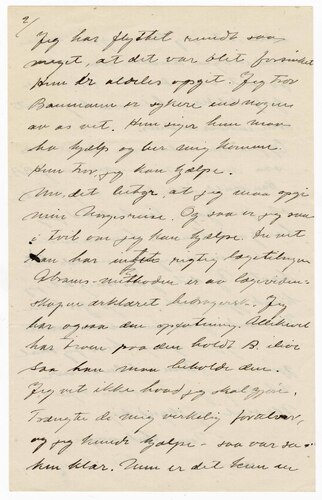 2/
Jeg har flyttet rundt saa
meget, at det var blit forsinket
Hun er aldeles opgit. Jeg tror
Baumann er sykere end nogen
av os vet. Hun siger hun maa
ha hjælp og ber mig komme.
Hun tror, jeg kan hjælpe.
Nu, det betyr, at jeg maa opgi
min Norgesreise. Og saa er jeg saa
i tvil om jeg kan hjælpe. Du vet
han har rigtig
Abrams-methoden er av lægeviden-
skapen erklæret bedragersk. Jeg
har ogsaa den opfatning. Allikevel
har troen paa den holdt B. ilive
saa han maa beholde den.
Jeg vet ikke hvad jeg skal gjøre.
Trængte de mig virkelig foralvor,
og jeg kunde hjælpe - saa var sa-
ken klar. Men er det bare en